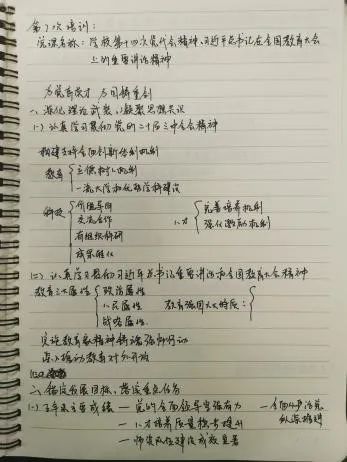 第1次培训：
党课名称：学校第十四次党代会精神、习近平总书记在全国教育大会
上的重要讲话精神
为党育英才 为国铸重剑
一、深化理论武装，凝聚思想共识
(一) 认真学习贯彻党的二十届三中全会精神
构建支持全面创新体制机制
教育 { 立德树人机制
一流大学和优势学科建设
科技 { 价值导向
交流合作
有组织科研
成果转化
人才 { 完善培养机制
强化激励机制
(二) 认真学习贯彻习近平总书记重要讲话和全国教育大会精神
教育三大属性 { 政治属性
人民属性
战略属性
教育强国六大特质：{
实施教育家精神铸魂强师行动
深入推动教育对外开放
二、锚定发展目标，落实重点任务
(一) 五年来主要成绩 — 党的全面领导坚强有力 — 全面从严治党
纵深推进
— 人才培养质量稳步提升
— 师资队伍建设成效显著